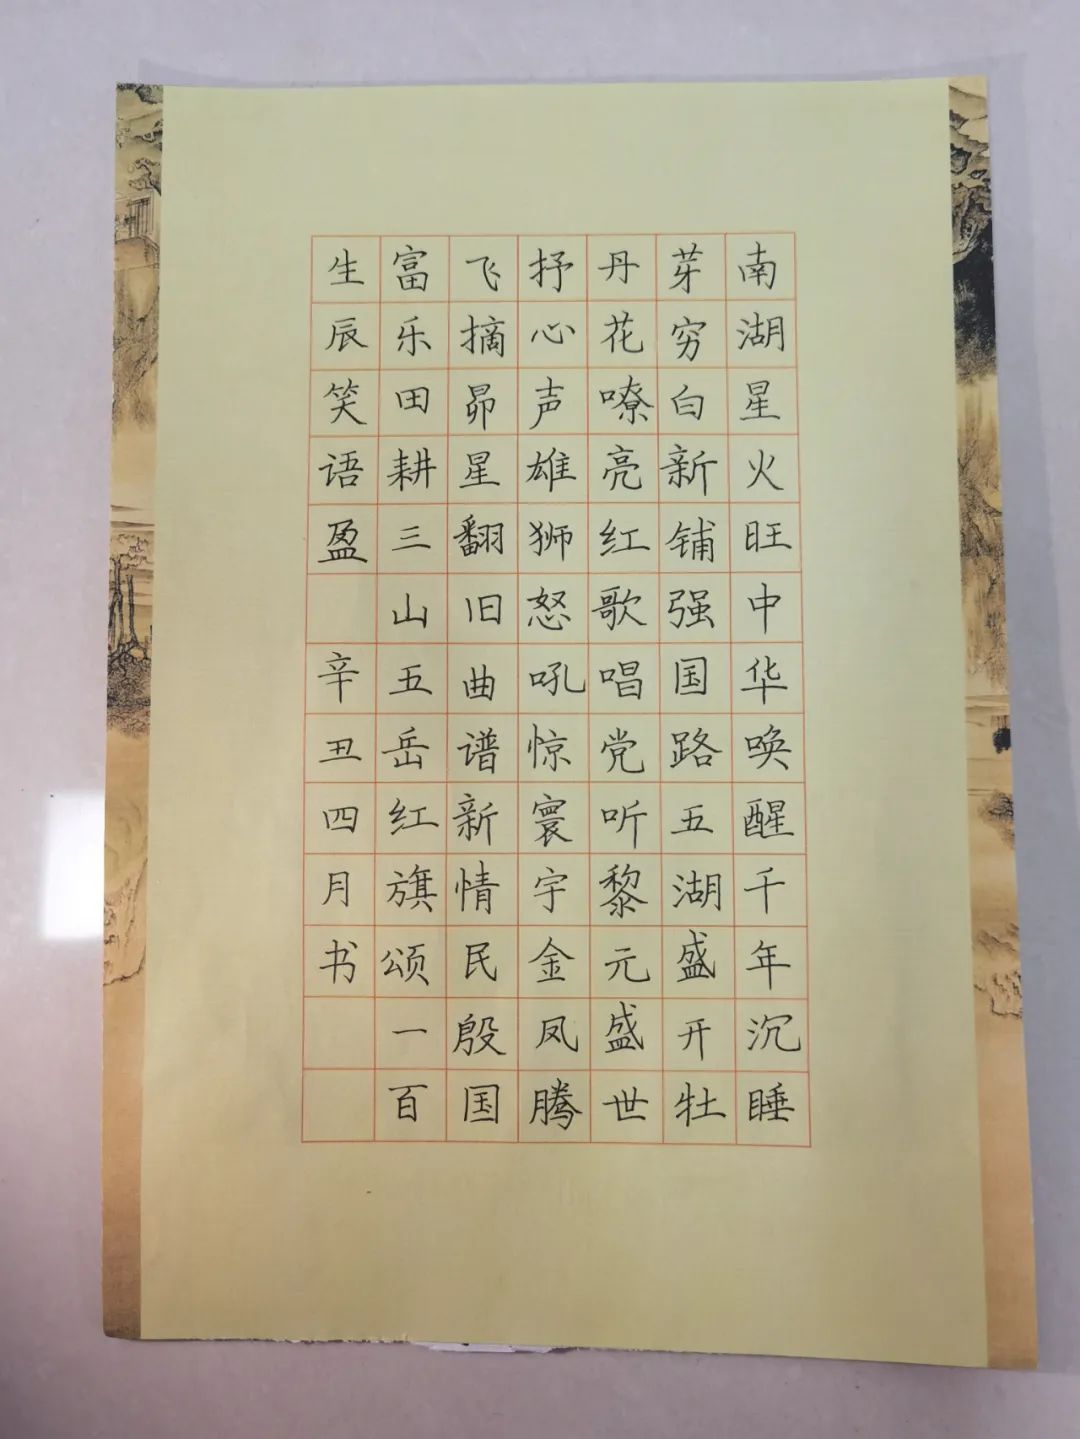 南湖星火旺中华唤醒千年沉睡
芽穷白新铺强国路五湖盛开牡
丹花嘹亮红歌唱党听黎元盛世
抒心声雄狮怒吼惊寰宇金凤腾
飞摘昴星翻旧曲谱新情民殷国
富乐田耕三山五岳红旗颂一百
生辰笑语盈 辛丑四月书